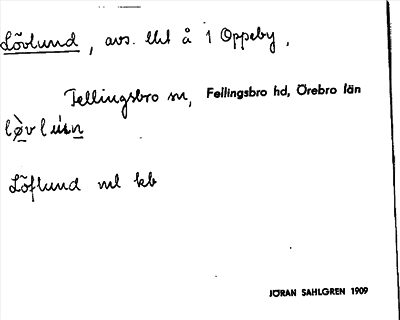 Lövlund, avs. lht å 1 Oppeby.
Fellingsbro sn, Fellingsbro hd, Örebro län
Löflund ml kb
JÖRAN SAHLGREN 1909